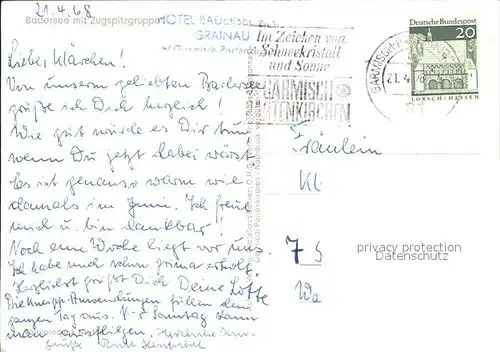 21.4.68
Badersee mit Zugspitzgruppe
HOTEL BADERSEE
GRAINAU
b/ Garmisch-Partenk
Im Zeichen von
Schneekristall
und Sonne
GARMISCH
PARTENKIRCHEN
GARMISCH-P
21. 4. 68
Deutsche Bundespost
20
LORSCH/HESSEN
Liebes Klärchen!
Von unserem geliebten Badersee
grüße ich Dich herzlich!
Wie gut würde es Dir tun
wenn Du jetzt dabei wärst.
Es ist genauso warm wie
damals im Juni. Ich freue
mich u. bin dankbar!
Noch eine Woche liegt vor uns.
Ich habe mich schon prima erholt.
Herzlichst grüßt Dich Deine Lotte
Die Kneipp-Anwendungen füllen den
ganzen Tag aus. Sonntag kann
man ausfliegen. Herzliche
Grüße
Fräulein
Kl
7 S
Wa
privacy protection
Datenschutz